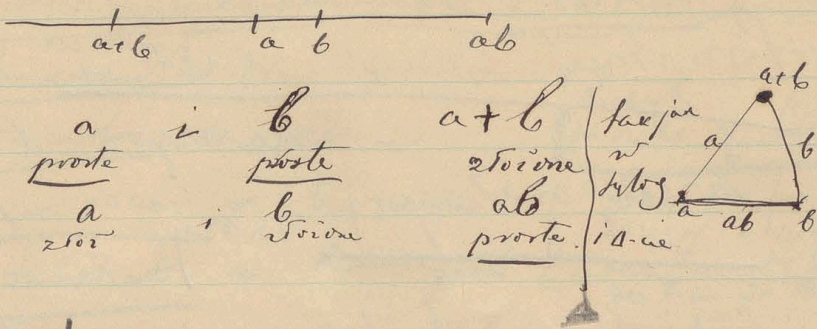 a+b a b ab
a i b a+b
proste proste złożone
a i b ab
złoż złożone proste.
tak jak
w
sylog
i Δ-cie
a+b
a b
a ab b